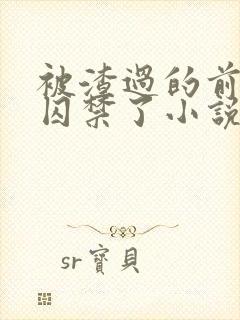 被渣過的前
囚禁了小說
sr寶貝